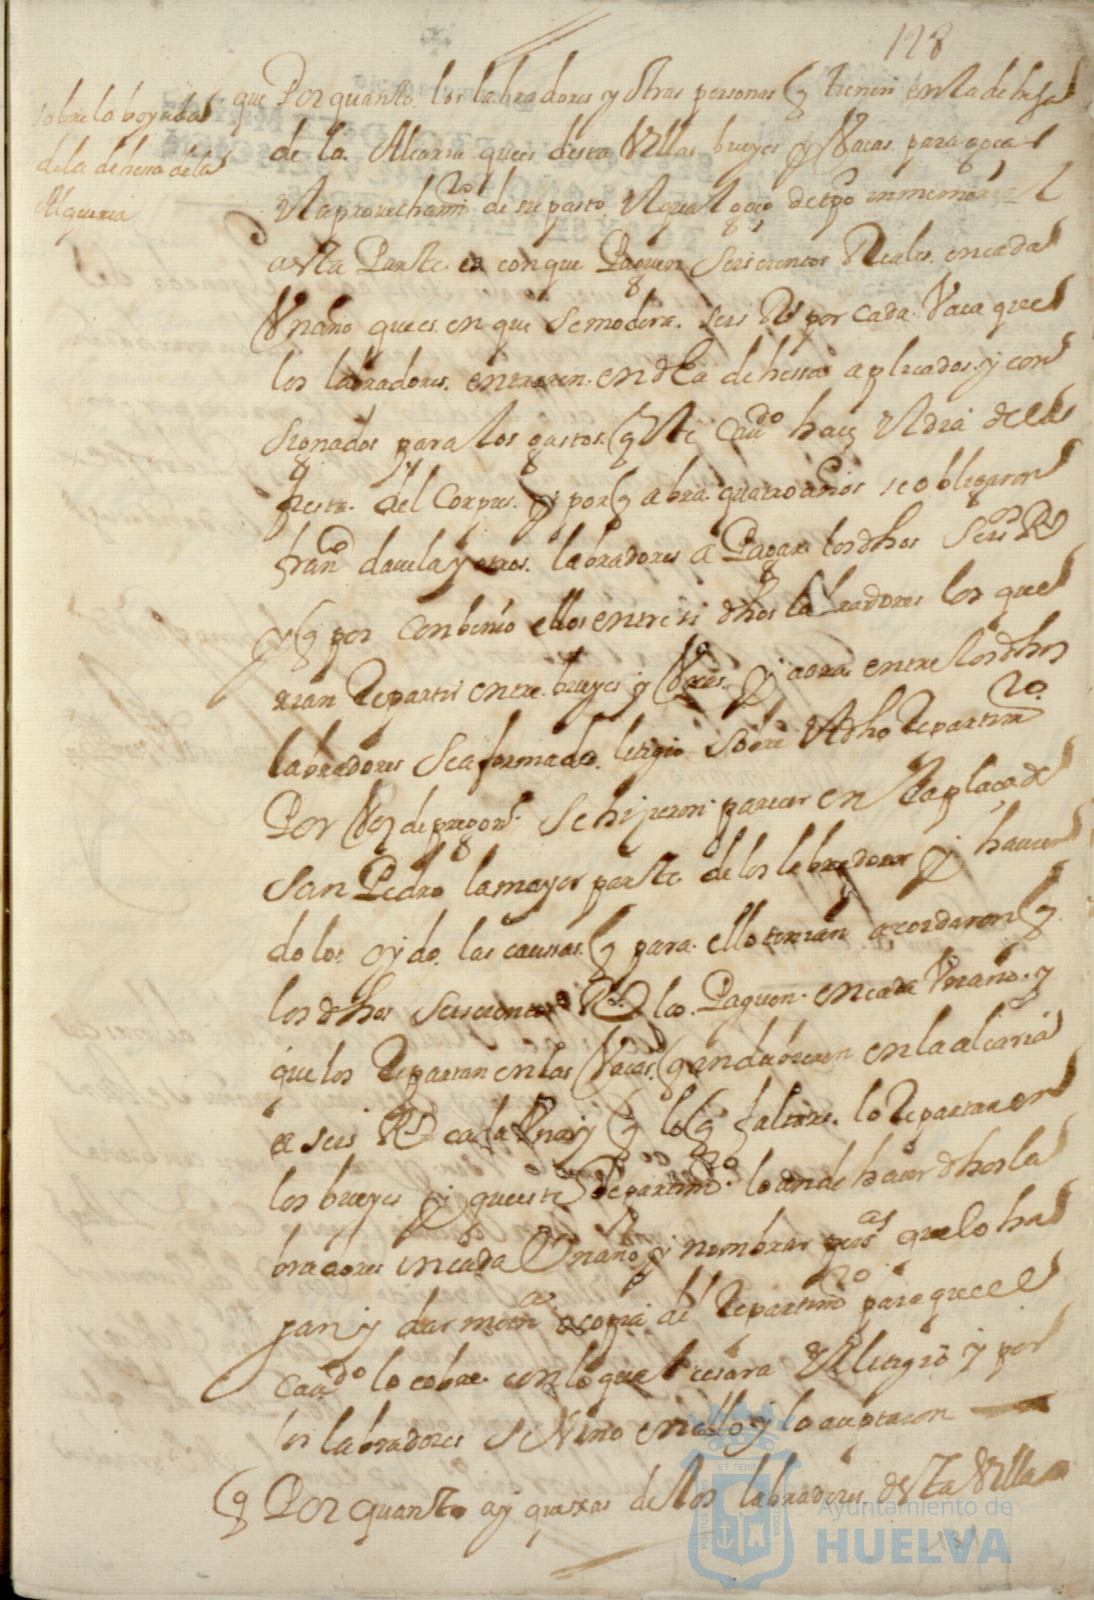 128
sobre la boyada
de la dehesa de la
Alqueria
que Por quanto los labradores y otras personas q tienen en la dehesa
de la Alcaria ques desta Villa bueyes y Vacas para goçar
el aprovechamito de su pasto el qual goço de tpo inmemorial
a esta Parte es con que Paguen seiscientos Reales en cada
Un año ques en que se modera seis Rs por cada Vaca que
los labradores entraren en dha dehessa aplicados y con
signados para los gastos q este Cavdo haçe el dia de la
fiesta del Corpus y porq abra quatro años se obligaron
franco davila y otros labradores a Pagar los dhos seisos Rs
y q por conbenio ellos entre si dhos labradores los que
rian Repartir entre bueyes y Vacas y aora entre los dhos
labradores se a formado litigio sobre el dho Repartimto
Por Voz de pregon se hizieron pareçer en la plaça de
San Pedro la mayor parte de los labradores y havien
dolos oydo las caussas q para ello tenian acordaron q
los dhos seiscientos Rs los Paguen en cada Un año y
que los Repartan en las Vacas q andubieren en la alcaria
a seis Rs cada Una y q lo q faltare lo Repartan en
los bueyes y que este Repartimto lo an de haçer dhos la
bradores en cada Un año y nombrar persas que lo ha
gan y dar mema o copia del Repartimto para que el
Cavdo lo cobre con lo que cesara el litigio y por
los labradores se Vino en ello y lo aceptaron
q Por quanto ay quexas de los labradores desta Villa
Ayuntamiento de
HUELVA